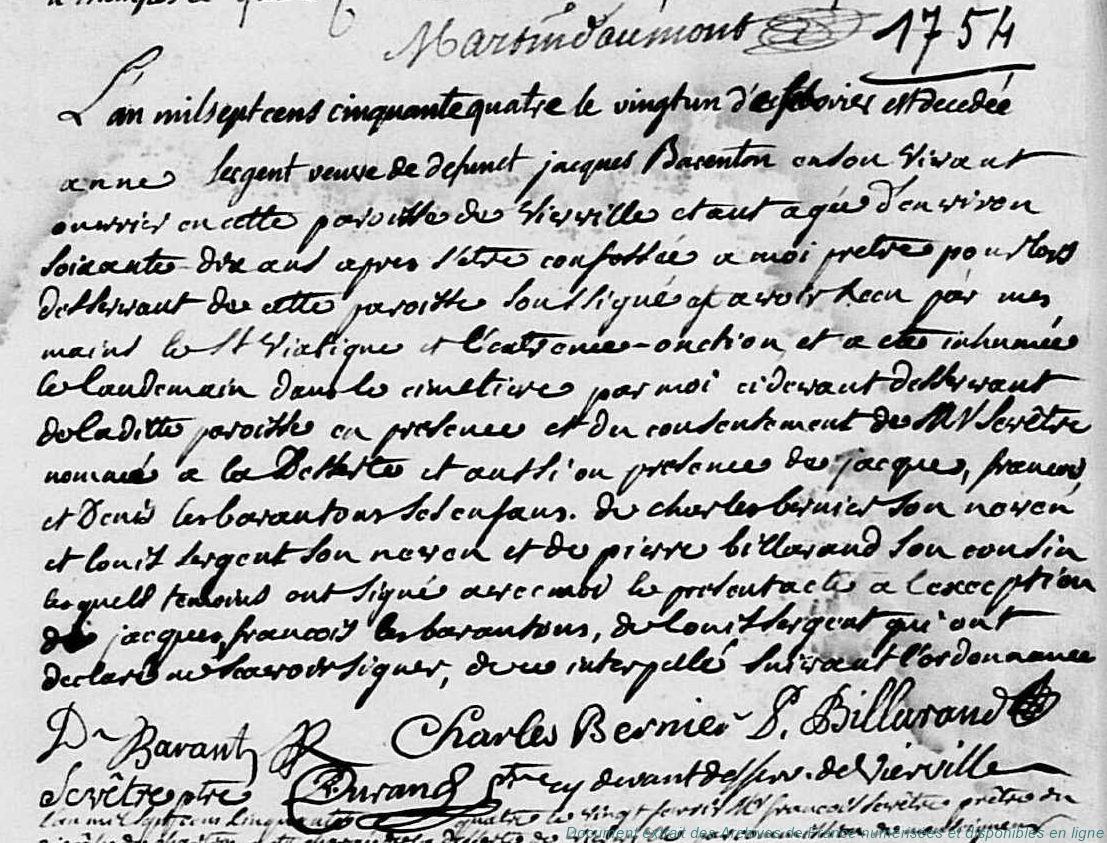 Martin d'aumont 1754
L'an mil sept cens cinquante quatre le vingt un de febvrier est decedée
anne Sergent veuve de defunct jacques Barenton en son vivant
ouvrier en cette paroisse de Vierville etant agée d'environ
soixante-dix ans apres s'être confessée a moi prêtre pour lors
desservant de cette paroisse soussigné et avoir recu par mes
mains le St Viatique et l'extreme-onction, et a eté inhumée
le landemain dans le cimetiere par moi cidevant desservant
de la ditte paroisse en presence et du consentement de Mr Sevêtre
nommé a la Desserte et aussi en presence de jacque, francois,
et Denis les barantons ses enfans. de charles bernier son neveu
et louis sergent son neveu et de pierre billarand son cousin
lesquels temoins ont signé avec moi le present acte a l'exception
de jacques, francois les barantons, de louis sergent qui ont
declaré ne scavoir signer, de ce interpellé suivant l'ordonnance
Ds Barant Charles Bernier P. Billarand
Sevêtre ptre Durand ptre cy devant desserv. de Vierville
L'an mil sept cent cinquante quatre le vingt fevrier Mr francois Sevêtre prêtre
Document extrait des Archives de France numérisées et disponibles en ligne